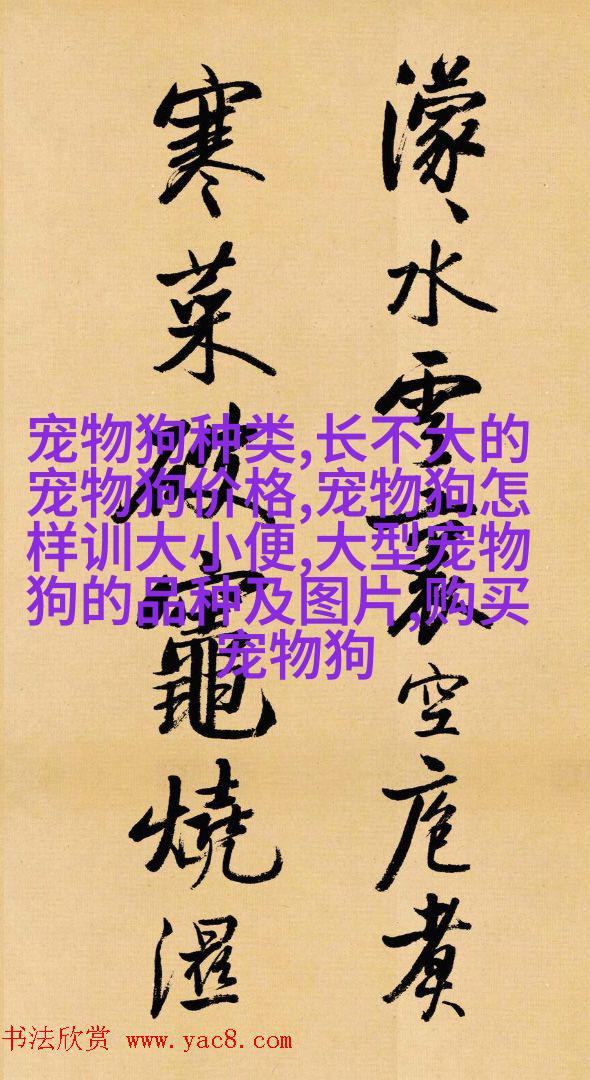 濛々水雲裏空庖煮
寒菜破竈燒濕
宠物狗种类,长不大的
宠物狗价格,宠物狗怎
样训大小便,大型宠物
狗的品种及图片,购买
宠物狗
书法欣赏 www.yac8.com